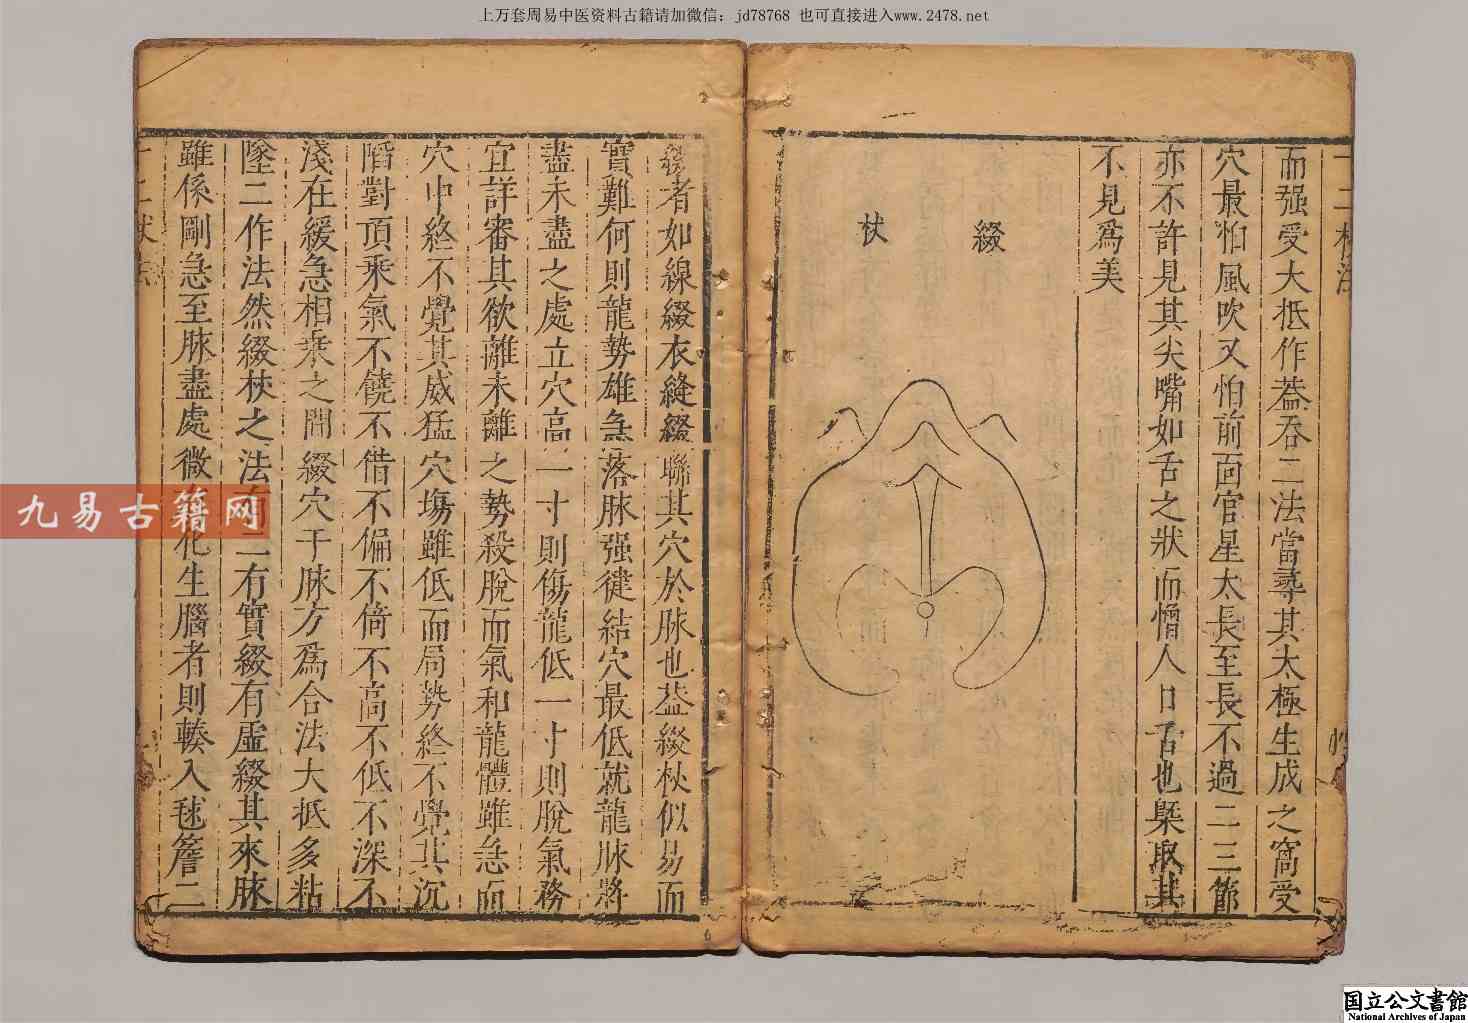 上万套周易中医资料古籍请加微信：jd78768 也可直接进入www.2478.net
而强受大抵作葢吞二法當尋其太極生成之窩受
穴最怕風吹又怕前面官星太長至長不過二三節
亦不許見其尖嘴如舌之狀而憎人口舌也槩取其
不見為美
綴
杖
綴者如線綴衣縫綴聯其穴於脉也葢綴杖似易而
實難何則龍勢雄急落脉强徤結穴最低就龍脉將
盡未盡之處立穴高一寸則傷龍低一寸則脫氣務
宜詳審其欲離未離之勢殺脫而氣和龍體雖急而
穴中終不覺其威猛穴塲雖低而局勢終不覺其沉
陷對頂乘氣不饒不借不偏不倚不高不低不深不
淺在緩急相乘之間綴穴于脉方為合法大抵多粘
墜二作法然綴杖之法有二有實綴有虛綴其來脉
雖係剛急至脉盡處微化生腦者則轃入毬簷二
九易古籍网
国立公文書館
National Archives of Japan